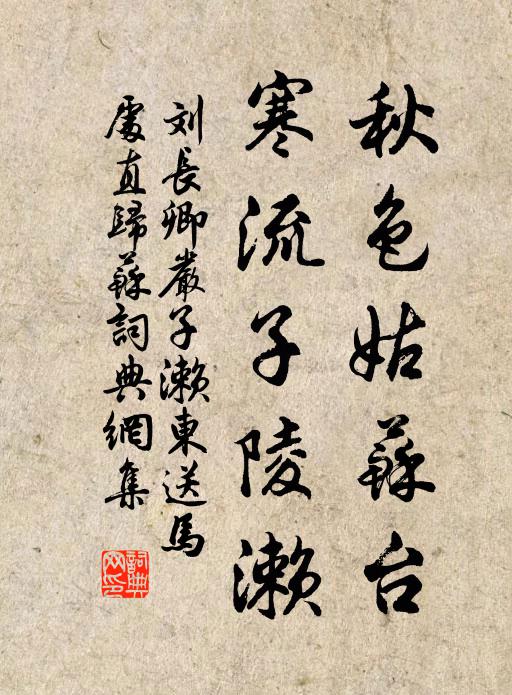 秋色姑蘇台
寒流子陵濑
刘長卿嚴子濑東送馬
處直歸蘇詞典網集
詞典
网印